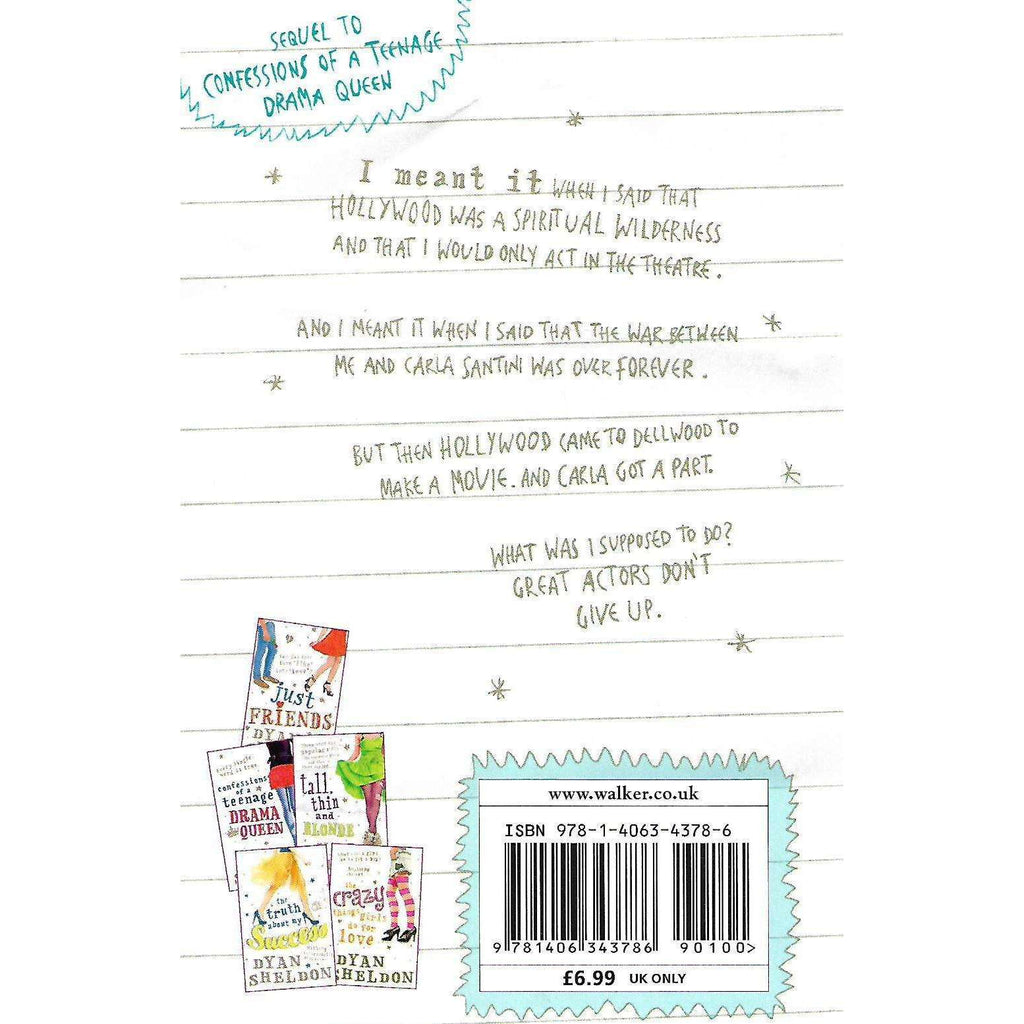 SEQUEL TO
CONFESSIONS OF A TEENAGE
DRAMA QUEEN
I meant it WHEN I SAID THAT
HOLLYWOOD WAS A SPIRITUAL WILDERNESS
AND THAT I WOULD ONLY ACT IN THE THEATRE.
AND I MEANT IT WHEN I SAID THAT THE WAR BETWEEN
ME AND CARLA SANTINI WAS OVER FOREVER.
BUT THEN HOLLYWOOD CAME TO DELLWOOD TO
MAKE A MOVIE. AND CARLA GOT A PART.
WHAT WAS I SUPPOSED TO DO?
GREAT ACTORS DON'T
GIVE UP.
just
FRIENDS
confessions
of a
teenage
DRAMA
QUEEN
tall,
thin
and
BLONDE
the
truth
about my
Success
DYAN
SHELDON
the
crazy
things girls
do for
love
DYAN
SHELDON
www.walker.co.uk
ISBN 978-1-4063-4378-6
9 781406 343786 90100>
£6.99 UK ONLY